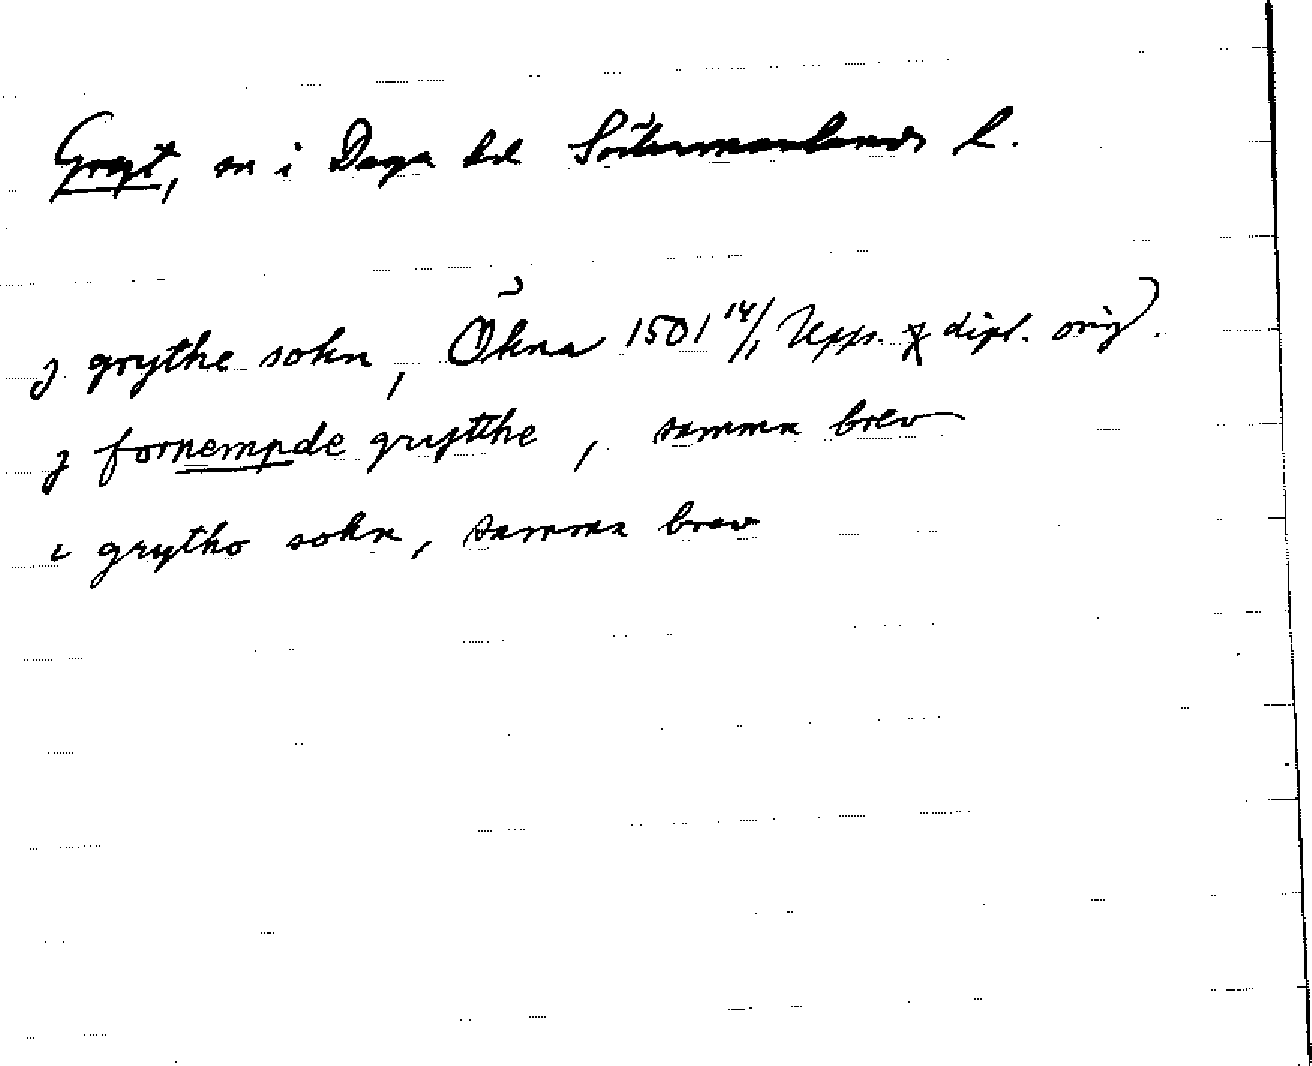 Gryt, sn i Daga hd Södermanlands L.
j grythe sokn, Ökna 1501 14/1 Upps. dipl. orig.
j fornempde grytthe, samma brev
i grytho sokn, samma brev